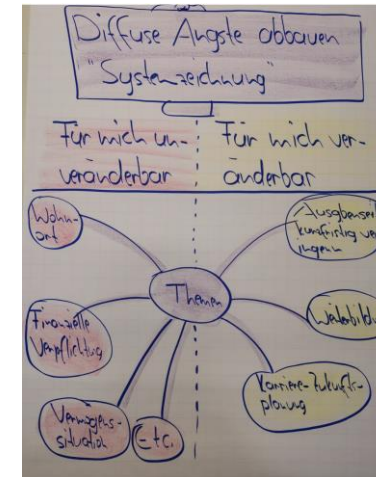 Diffuse Ängste abbauen
"Systemzeichnung"
Für mich un-
veränderbar
Für mich ver-
änderbar
Wohn-
ort
Finanzielle
Verpflichtung
Vermögens-
situation
Etc.
Themen
kurzfristig ver
ingern
Weiterbildu
Karriere-Zukunfts-
planung